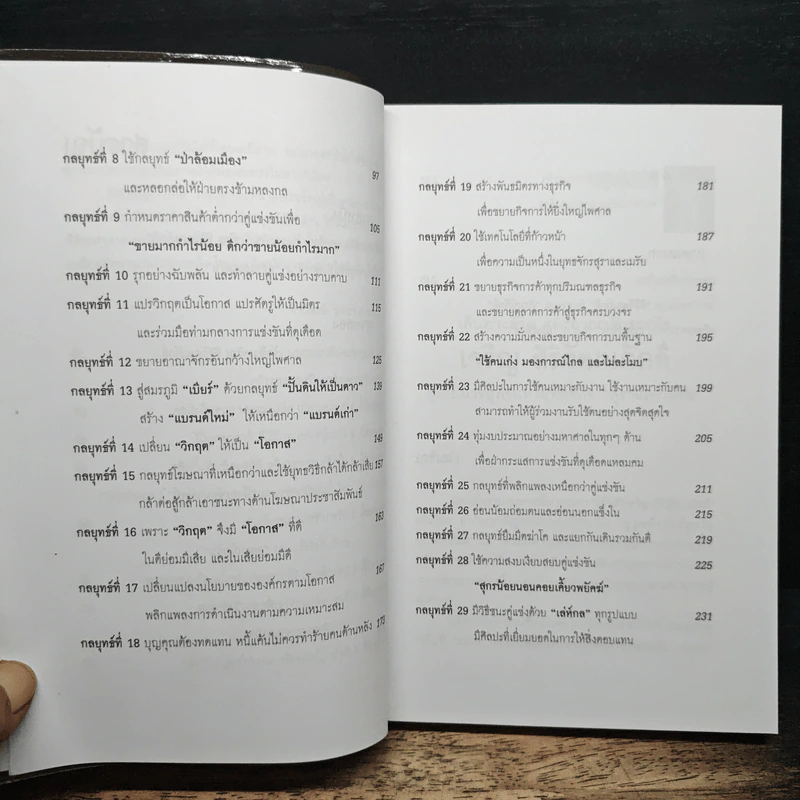 กลยุทธ์ที่ 8 ใช้กลยุทธ์ "ป่าล้อมเมือง" 97
และหลอกล่อให้ฝ่ายตรงข้ามหลงกล
กลยุทธ์ที่ 9 กำหนดราคาสินค้าต่ำกว่าคู่แข่งขันเพื่อ 105
"ขายมากกำไรน้อย ดีกว่าขายน้อยกำไรมาก"
กลยุทธ์ที่ 10 รุกอย่างฉับพลัน และทำลายคู่แข่งอย่างราบคาบ 111
กลยุทธ์ที่ 11 แปรวิกฤตเป็นโอกาส แปรศัตรูให้เป็นมิตร 115
และร่วมมือท่ามกลางการแข่งขันที่ดุเดือด
กลยุทธ์ที่ 12 ขยายอาณาจักรอันกว้างใหญ่ไพศาล 125
กลยุทธ์ที่ 13 สู่สมรภูมิ "เบียร์" ด้วยกลยุทธ์ "ปั้นดินให้เป็นดาว" 139
สร้าง "แบรนด์ใหม่" ให้เหนือกว่า "แบรนด์เก่า"
กลยุทธ์ที่ 14 เปลี่ยน "วิกฤต" ให้เป็น "โอกาส" 149
กลยุทธ์ที่ 15 กลยุทธ์โฆษณาที่เหนือกว่าและใช้ยุทธวิธีกล้าได้กล้าเสีย 157
กล้าต่อสู้กล้าเอาชนะทางด้านโฆษณาประชาสัมพันธ์
กลยุทธ์ที่ 16 เพราะ "วิกฤต" จึงมี "โอกาส" ที่ดี 163
ในดีย่อมมีเสีย และในเสียย่อมมีดี
กลยุทธ์ที่ 17 เปลี่ยนแปลงนโยบายขององค์กรตามโอกาส 167
พลิกแพลงการดำเนินงานตามความเหมาะสม
กลยุทธ์ที่ 18 บุญคุณต้องทดแทน หนี้แค้นไม่ควรทำร้ายคนด้านหลัง 175
กลยุทธ์ที่ 19 สร้างพันธมิตรทางธุรกิจ 181
เพื่อขยายกิจการให้ยิ่งใหญ่ไพศาล
กลยุทธ์ที่ 20 ใช้เทคโนโลยีที่ก้าวหน้า 187
เพื่อความเป็นหนึ่งในยุทธจักรสุราและเมรัย
กลยุทธ์ที่ 21 ขยายธุรกิจการค้าทุกปริมณฑลธุรกิจ 191
และขยายตลาดการค้าสู่ธุรกิจครบวงจร
กลยุทธ์ที่ 22 สร้างความมั่นคงและขยายกิจการบนพื้นฐาน 195
"ใช้คนเก่ง มองการณ์ไกล และไม่ละโมบ"
กลยุทธ์ที่ 23 มีศิลปะในการใช้คนเหมาะกับงาน ใช้งานเหมาะกับคน 199
สามารถทำให้ผู้ร่วมงานรับใช้ตนอย่างสุดจิตสุดใจ
กลยุทธ์ที่ 24 ทุ่มงบประมาณอย่างมหาศาลในทุกๆ ด้าน 205
เพื่อฝ่ากระแสการแข่งขันที่ดุเดือดแหลมคม
กลยุทธ์ที่ 25 กลยุทธ์ที่พลิกแพลงเหนือกว่าคู่แข่งขัน 211
กลยุทธ์ที่ 26 อ่อนน้อมถ่อมตนและอ่อนนอกแข็งใน 215
กลยุทธ์ที่ 27 กลยุทธ์ยืมมีดฆ่าโค และแยกกันเดินรวมกันตี 219
กลยุทธ์ที่ 28 ใช้ความสงบเงียบสยบคู่แข่งขัน 225
"สุกรน้อยนอนคอยเคี้ยวพยัคฆ์"
กลยุทธ์ที่ 29 มีวิธีชนะคู่แข่งด้วย "เล่ห์กล" ทุกรูปแบบ 231
มีศิลปะที่เยี่ยมยอดในการให้สิ่งตอบแทน